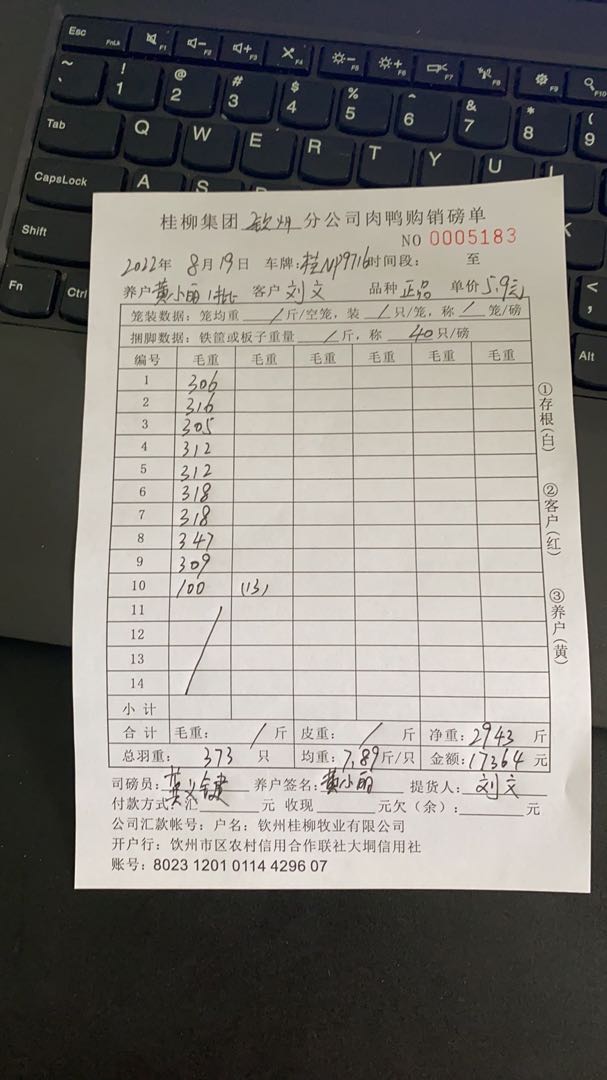 Esc FnLk F1 F2 F3 F4 F5 F6 F7 F8 F9 F10
~ ` ! 1 @ 2 # 3 $ 4 % 5 ^ 6 & 7 * 8 ( 9
Tab Q W E R T Y U
CapsLock A S
Shift
Fn Ctrl < , Alt
桂柳集团 钦州 分公司肉鸭购销磅单
NO 0005183
2022年 8月19日 车牌:桂NP9716时间段: 至
养户黄小丽 1批 客户 刘文 品种 正品 单价5.9元
笼装数据:笼均重 / 斤/空笼,装 / 只/笼,称 / 笼/磅
捆脚数据:铁筐或板子重量 / 斤,称 40只/磅
编号 毛重 毛重 毛重 毛重 毛重 毛重
1 306
2 316
3 305
4 312
5 312
6 318
7 318
8 347
9 309
10 100 (13)
11
12
13
14
小计
合计 毛重: / 斤 皮重: / 斤 净重:2943 斤
总羽重: 373 只 均重:7.89斤/只 金额:17364元
司磅员: 养户签名:黄小丽 提货人:刘文
付款方式:汇 元 收现 元欠(余): 元
公司汇款帐号:户名:钦州桂柳牧业有限公司
开户行:饮州市区农村信用合作联社大垌信用社
账号:8023 1201 0114 4296 07
①存根(白) ②客户(红) ③养户(黄)